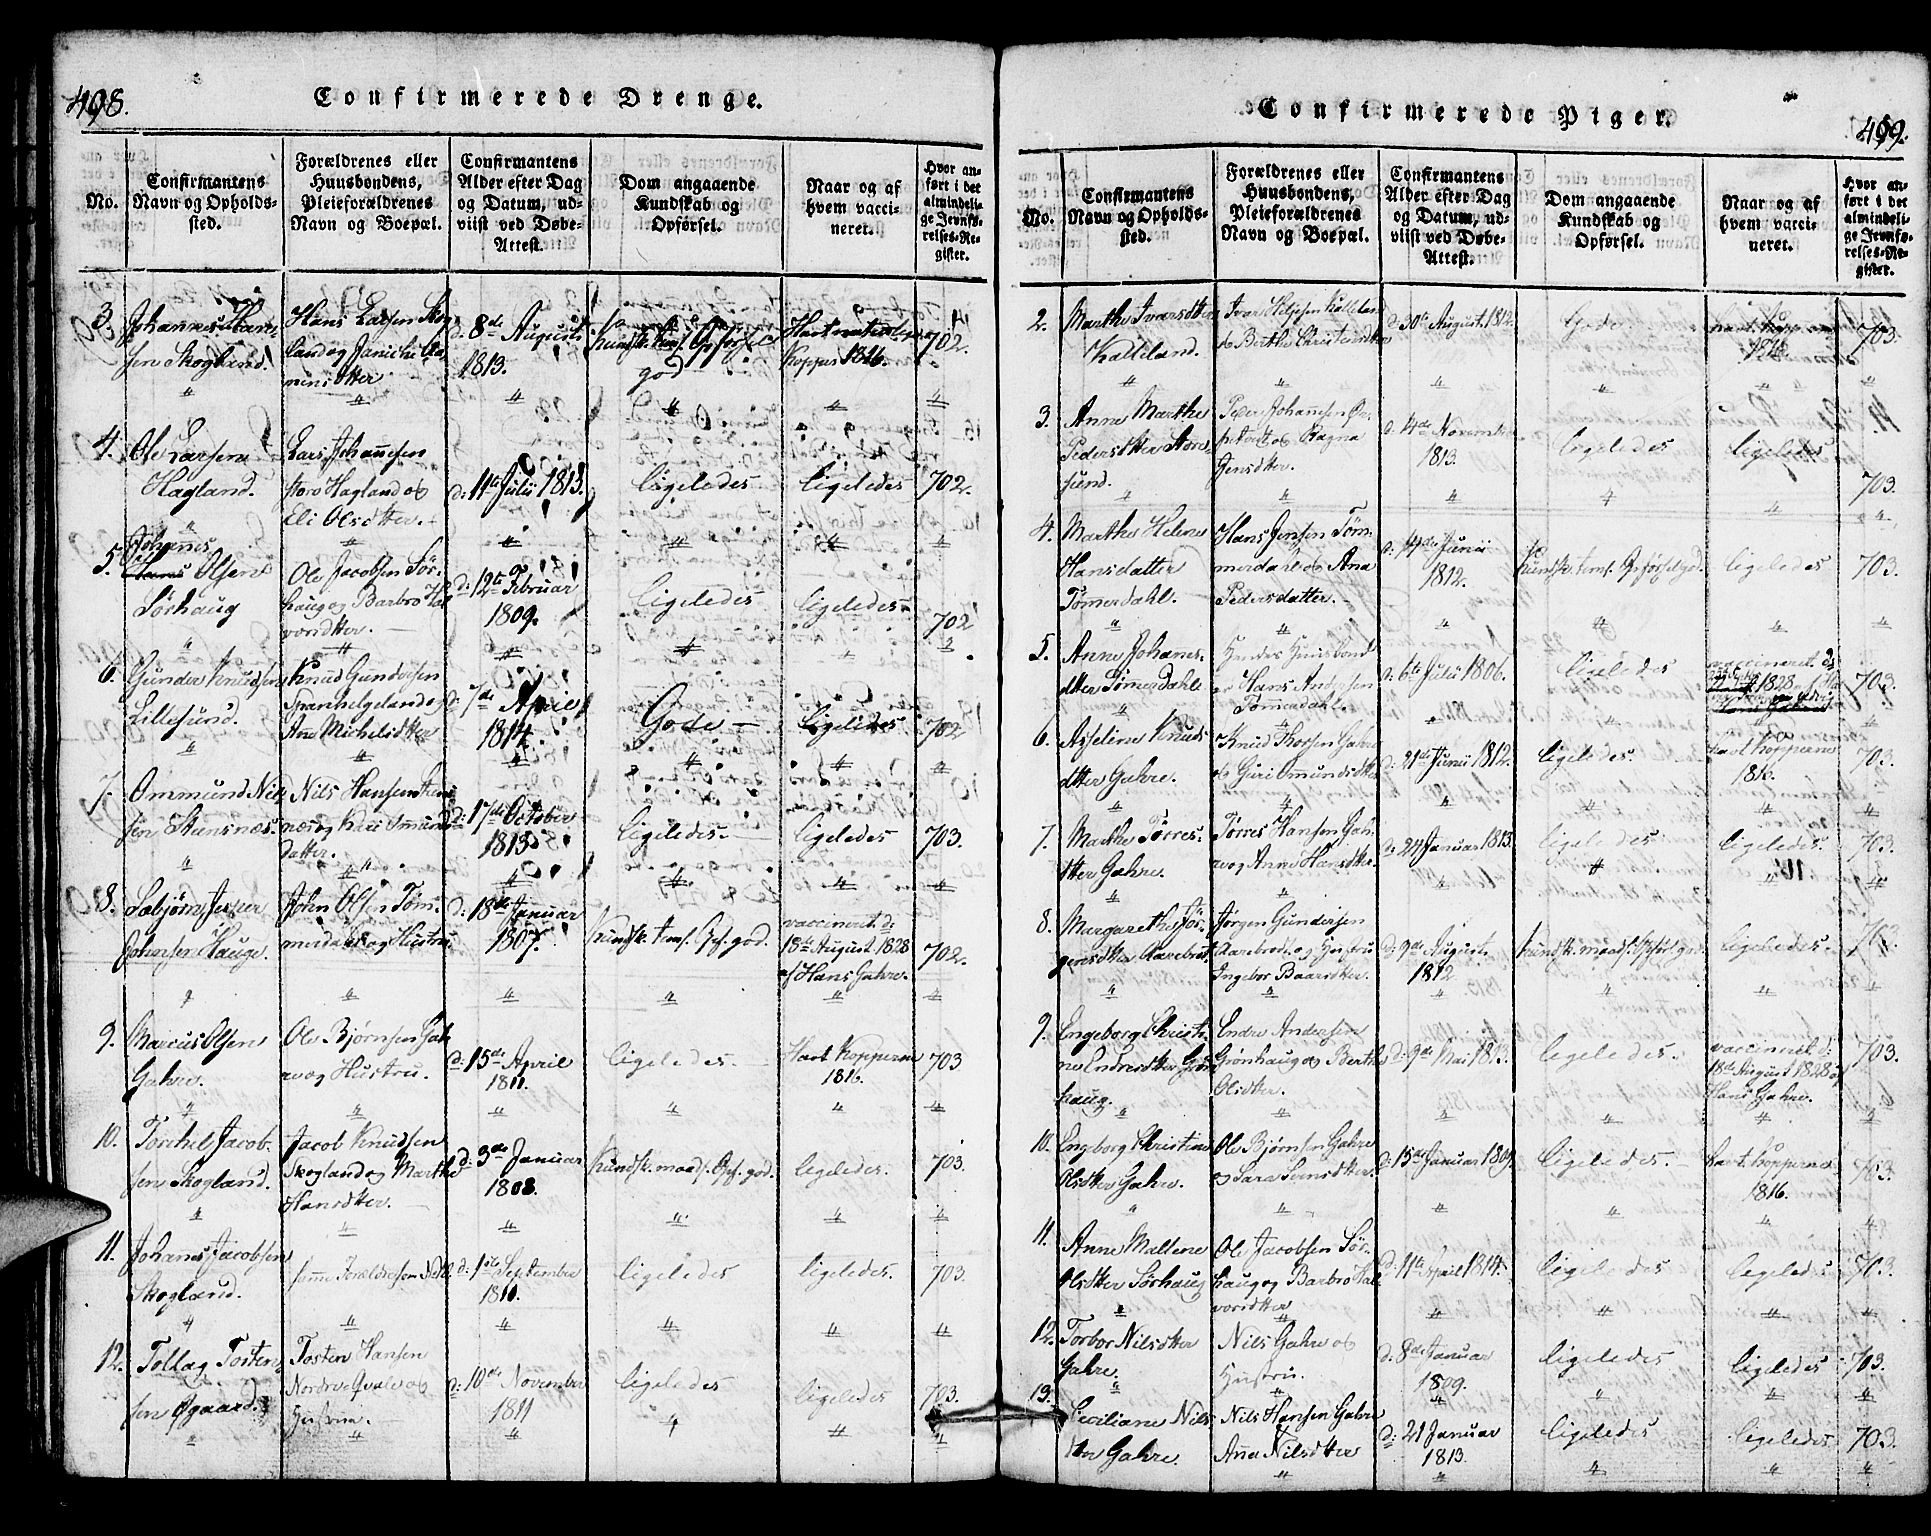 498.
Confirmerede Drenge.
No.
Confirmantens
Navn og Opholds-
sted.
Forældrenes eller
Huusbondens,
Pleieforældrenes
Navn og Boepæl.
Confirmantens
Alder efter Dag
og Datum, ud-
viist ved Døbe-
Attest.
Dom angaaende
Kundskab og
Opførsel.
Naar og af
hvem vacci-
neret.
Hvor an-
ført i det
almindeli-
ge Jevnfø-
relses-Re-
gister.
3.
Johannes Han-
sen Skogland.
Hans Larsen Skog-
land og Janiche
d: 8de August
1813.
god
Kopper 1816.
702.
4.
Ole Larsen
Hagland.
Lars Johannesen
store Hagland og
Eli Olsdtter.
d: 11te Julii 1813.
ligeledes
ligeledes
702.
5.
Johannes
Hans Olsen
Sørhaug
Ole Jacobsen Sør-
haug og Barbro Hal-
vorsdtter.
d: 12te Februar
1809.
ligeledes
ligeledes
702
6.
Gunder Knudsen
Lillesund.
Knud Gundersen
Spanhelgeland og
Ane Michelsdtter
d: 7de April
1814.
Gode
ligeledes
702
7.
Ommund Niel-
sen Steensnæs.
Nils Hansen Steens-
næs og Kari Omunds-
datter.
d: 17de October
1813
ligeledes
ligeledes
703.
8.
Sæbjørn Jesper
Johnsen Hauge.
John Olsen Tøm-
merdahl og Hustru
d: 18de Januar
1807.
Kundsk. tems. Opf. god.
vaccineret d:
18de August 1828
af Hans Gahre.
702.
9.
Marcus Olsen
Gahre.
Ole Bjørnsen Gah-
re og Hustru.
d: 15de April
1811.
ligeledes
Havt Kopperne
1816.
703
10.
Torchel Jacob-
sen Skogland.
Jacob Knudsen
Skogland og Marthe
Hansdtter.
d: 3de Januar
1808.
Kundsk. maads. Opf. god.
ligeledes.
703.
11.
Johanes Jacobsen
Skogland.
d: 1ste September
1810.
ligeledes
ligeledes.
703.
12.
Tollag Tosten-
sen Øgaard.
Tosten Hansen
Nordre Qvale og
Hustrue.
d: 10de November
1811
ligeledes
ligeledes
703.
Confirmerede Piger.
499.
No.
Confirmantens
Navn og Opholds-
sted.
Forældrenes eller
Huusbondens,
Pleieforældrenes
Navn og Boepæl.
Confirmantens
Alder efter Dag
og Datum, ud-
viist ved Døbe-
Attest.
Dom angaaende
Kundskab og
Opførsel.
Naar og af
hvem vacci-
neret.
Hvor an-
ført i det
almindeli-
ge Jevnfø-
relses-Re-
gister.
2.
Marthe Ivarsdtter
Kalleland.
Ivar Helgesen Kalleland
og Berthe Christensdtter
d: 30te August 1812.
Gode
havt Kopperne
1816.
703.
3.
Anne Marthe
Pedersdtter Store-
sund.
Peder Johansen
og Ragna
Jensdtter.
d: 4de November
1813.
ligeledes
ligeledes
703.
4.
Marthe Helene
Hansdatter
Tømerdahl.
Hans Jensen Tøm-
merdahl og Ana
Pedersdatter.
d: 14de Junii
1812.
Kundsk. tems. Opførsel god.
ligeledes
703.
5.
Anne Johanes-
dtter Tømerdahl
Hendes Huusbond
er Hans Andersen
Tømerdahl.
d: 6te Julii 1806.
ligeledes
vaccineret d:
1828
703.
6.
Asseline Knuds-
dtter Gahre.
Knud Thorsen Gahre
og Guri Omundsdtter
d: 21de Junii 1812.
ligeledes.
havt Kopperne
1816.
703.
7.
Marthe Tørres-
dtter Gahre.
Tørres Hansen Gah-
re og Anne Hansdtter.
d: 24 Januar 1813.
ligeledes
ligeledes.
703.
8.
Margarethe Jør-
gensdtter Aarebrot.
Jørgen Gundersen
Aarebrot og Hustru
Ingebor Baarsdtter.
d: 9de August
1812
Kundsk. maads. Opførsel god
ligeledes.
703.
9.
Engeborg Christi-
ne Endresdtter Grøn-
haug.
Endre Andersen
Grønhaug og Berthe
Olsdtter.
d: 9de Mai 1813.
legeledes.
vaccineret d:
18de August 1828 af
Hans Gahre.
703.
10.
Engeborg Christine
Olsdtter Gahre.
Ole Bjørnsen Gahre
og Sara Sensdtter.
d: 15de Januar 1809.
ligeledes.
havt Kopperne
1816.
703.
11.
Anne Maltene
Olsdtter Sørhaug
Ole Jacobsen Sør-
haug og Barbro Hal-
vorsdtter
d: 11te April 1814.
ligeledes
ligeledes
703.
12.
Torbor Nilsdtter
Gahre.
Nils Gahre og
Hustru.
d: 8de Januar
1809.
ligeledes
ligeledes
703.
13.
Ceciliane Nils-
dtter Gahre.
Nils Hansen Gahre
Ana Nilsdtter
d: 21 Januar
1813.
ligeledes
ligeledes
703.